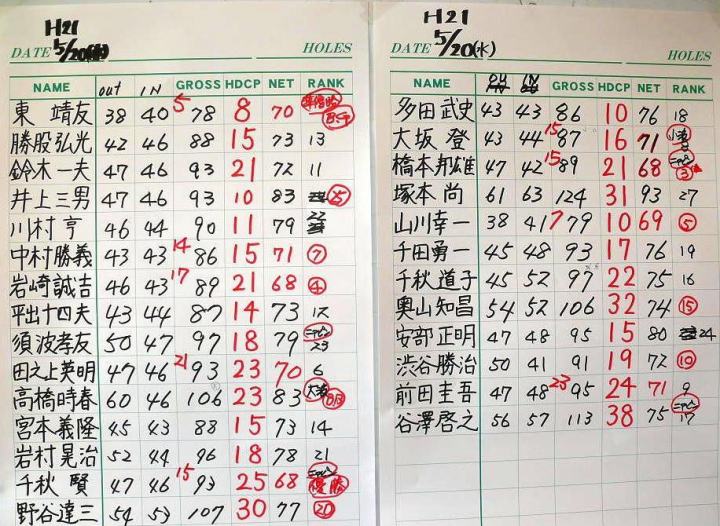 H21
DATE 5/20(水) HOLES
NAME out IN GROSS HDCP NET RANK
東 靖友 38 40 5 78 8 70 準優勝
勝股弘光 42 46 88 15 73 13
鈴木一夫 47 46 93 21 72 11
井上三男 47 46 93 10 83 25
川村 亨 46 44 90 11 79 22
中村勝義 43 43 14 86 15 71 7
岩崎誠吉 46 43 17 89 21 68 4
平出十四夫 43 44 87 14 73 12
須波孝友 50 47 97 18 79 ニアピン 23
田之上英明 47 46 21 93 23 70 6
高橋時春 60 46 106 23 83 大波 BB
宮本義隆 45 43 88 15 73 14
岩村晃治 52 44 96 18 78 21
千秋 賢 47 46 15 93 25 68 ニアピン 優勝
野谷達三 54 53 107 30 77 20
H21
DATE 5/20(水) HOLES
NAME OUT IN GROSS HDCP NET RANK
多田武史 43 43 86 10 76 18
大坂 登 43 44 15 87 16 71 小波 8
橋本邦雄 47 42 15 89 21 68 ニアピン 3
塚本 尚 61 63 124 31 93 27
山川幸一 38 41 7 79 10 69 5
千田勇一 45 48 93 17 76 19
千秋道子 45 52 97 22 75 16
奥山知昌 54 52 106 32 74 15
安部正明 47 48 95 15 80 24
渋谷勝治 50 41 91 19 72 10
前田圭吾 47 48 23 95 24 71 9
谷澤啓之 56 57 113 38 75 ニアピン 17